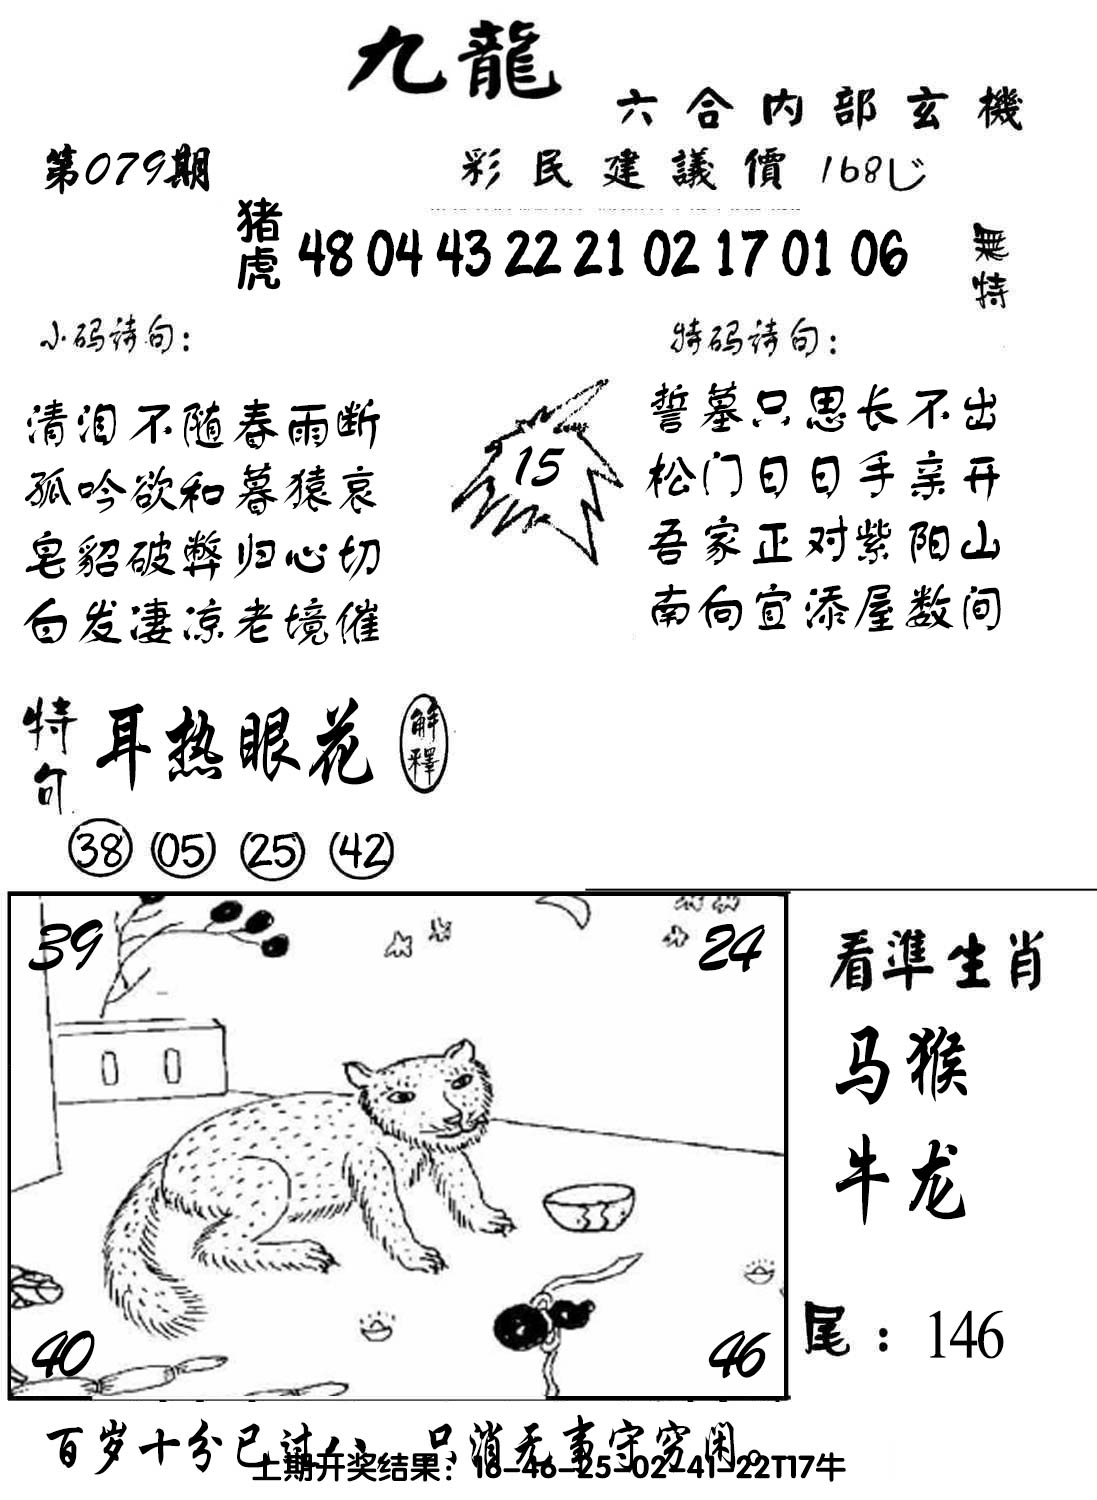 九龍
六合内部玄機
第079期
彩民建議價168じ
猪虎
48 04 43 22 21 02 17 01 06
無特
小码诗句：
清泪不随春雨断
孤吟欲和暮猿哀
皂貂破弊归心切
白发凄凉老境催
15
特码诗句：
誓墓只思长不出
松门日日手亲开
吾家正对紫阳山
南向宜添屋数间
特句
耳热眼花
解釋
38 05 25 42
39
24
40
46
看準生肖
马猴
牛龙
尾：146
百岁十分已过八，只消无事守穷闲。
上期开奖结果：16-46-25-02-41-22T17牛